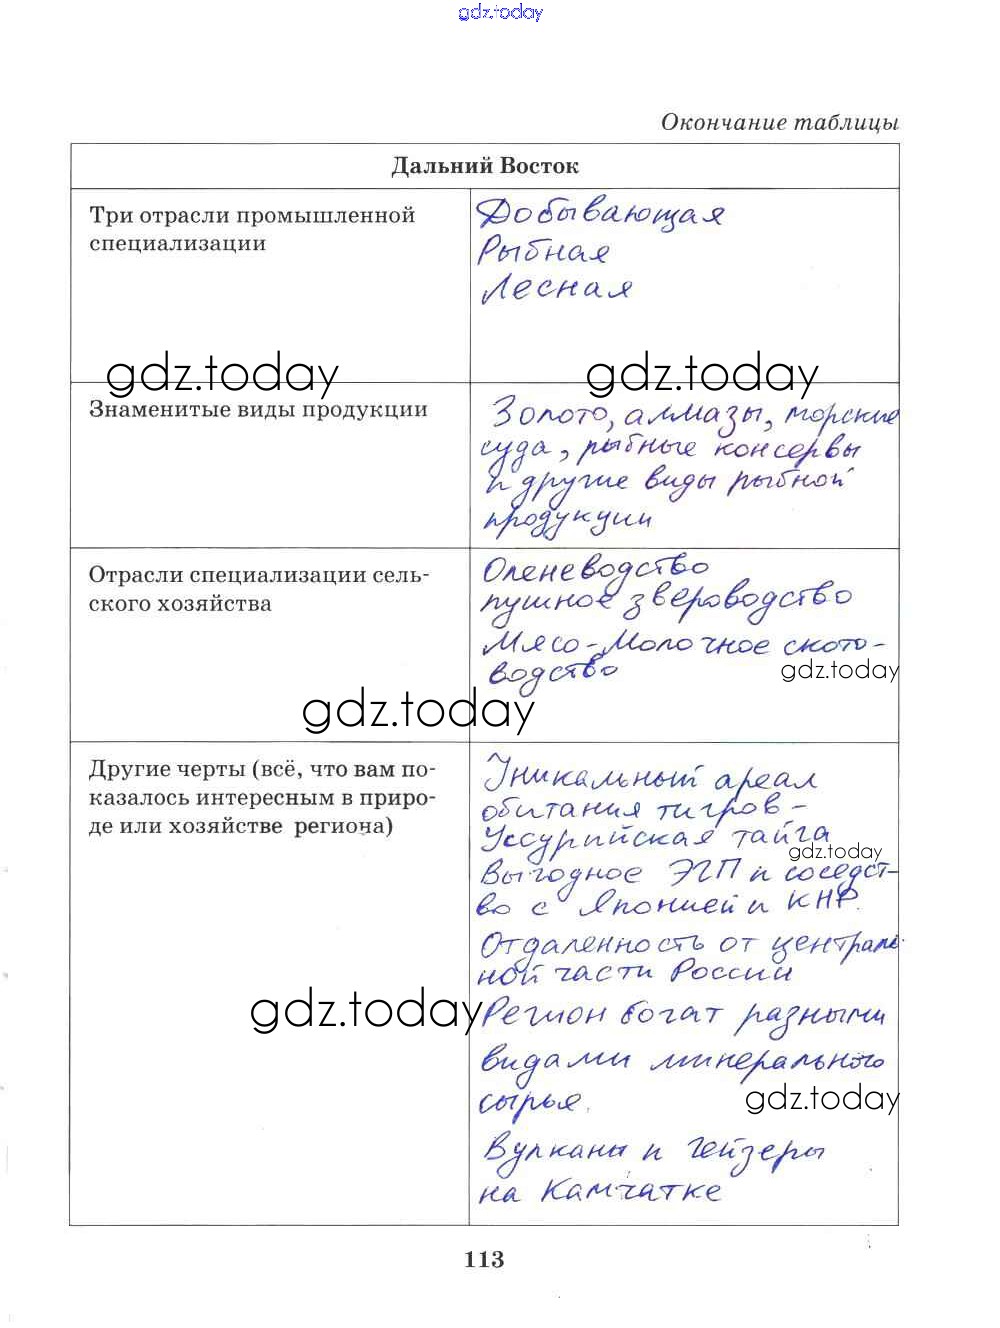 gdz.today
Окончание таблицы
Дальний Восток
Три отрасли промышленной
специализации
Добывающая
Рыбная
Лесная
gdz.today
gdz.today
Знаменитые виды продукции
Золото, алмазы, морские
суда, рыбные консервы
и другие виды рыбной
продукции
Отрасли специализации сель-
ского хозяйства
Оленеводство
пушное звероводство
Мясо-молочное ското-
водство
gdz.today
gdz.today
Другие черты (всё, что вам по-
казалось интересным в приро-
де или хозяйстве региона)
Уникальный ареал
обитания тигров -
Уссурийская тайга
gdz.today
Выгодное ЭГП и соседст-
во с Японией и КНР.
Отдаленность от централь-
ной части России
gdz.today
Регион богат разными
видами минерального
сырья.
gdz.today
Вулканы и гейзеры
на Камчатке
113